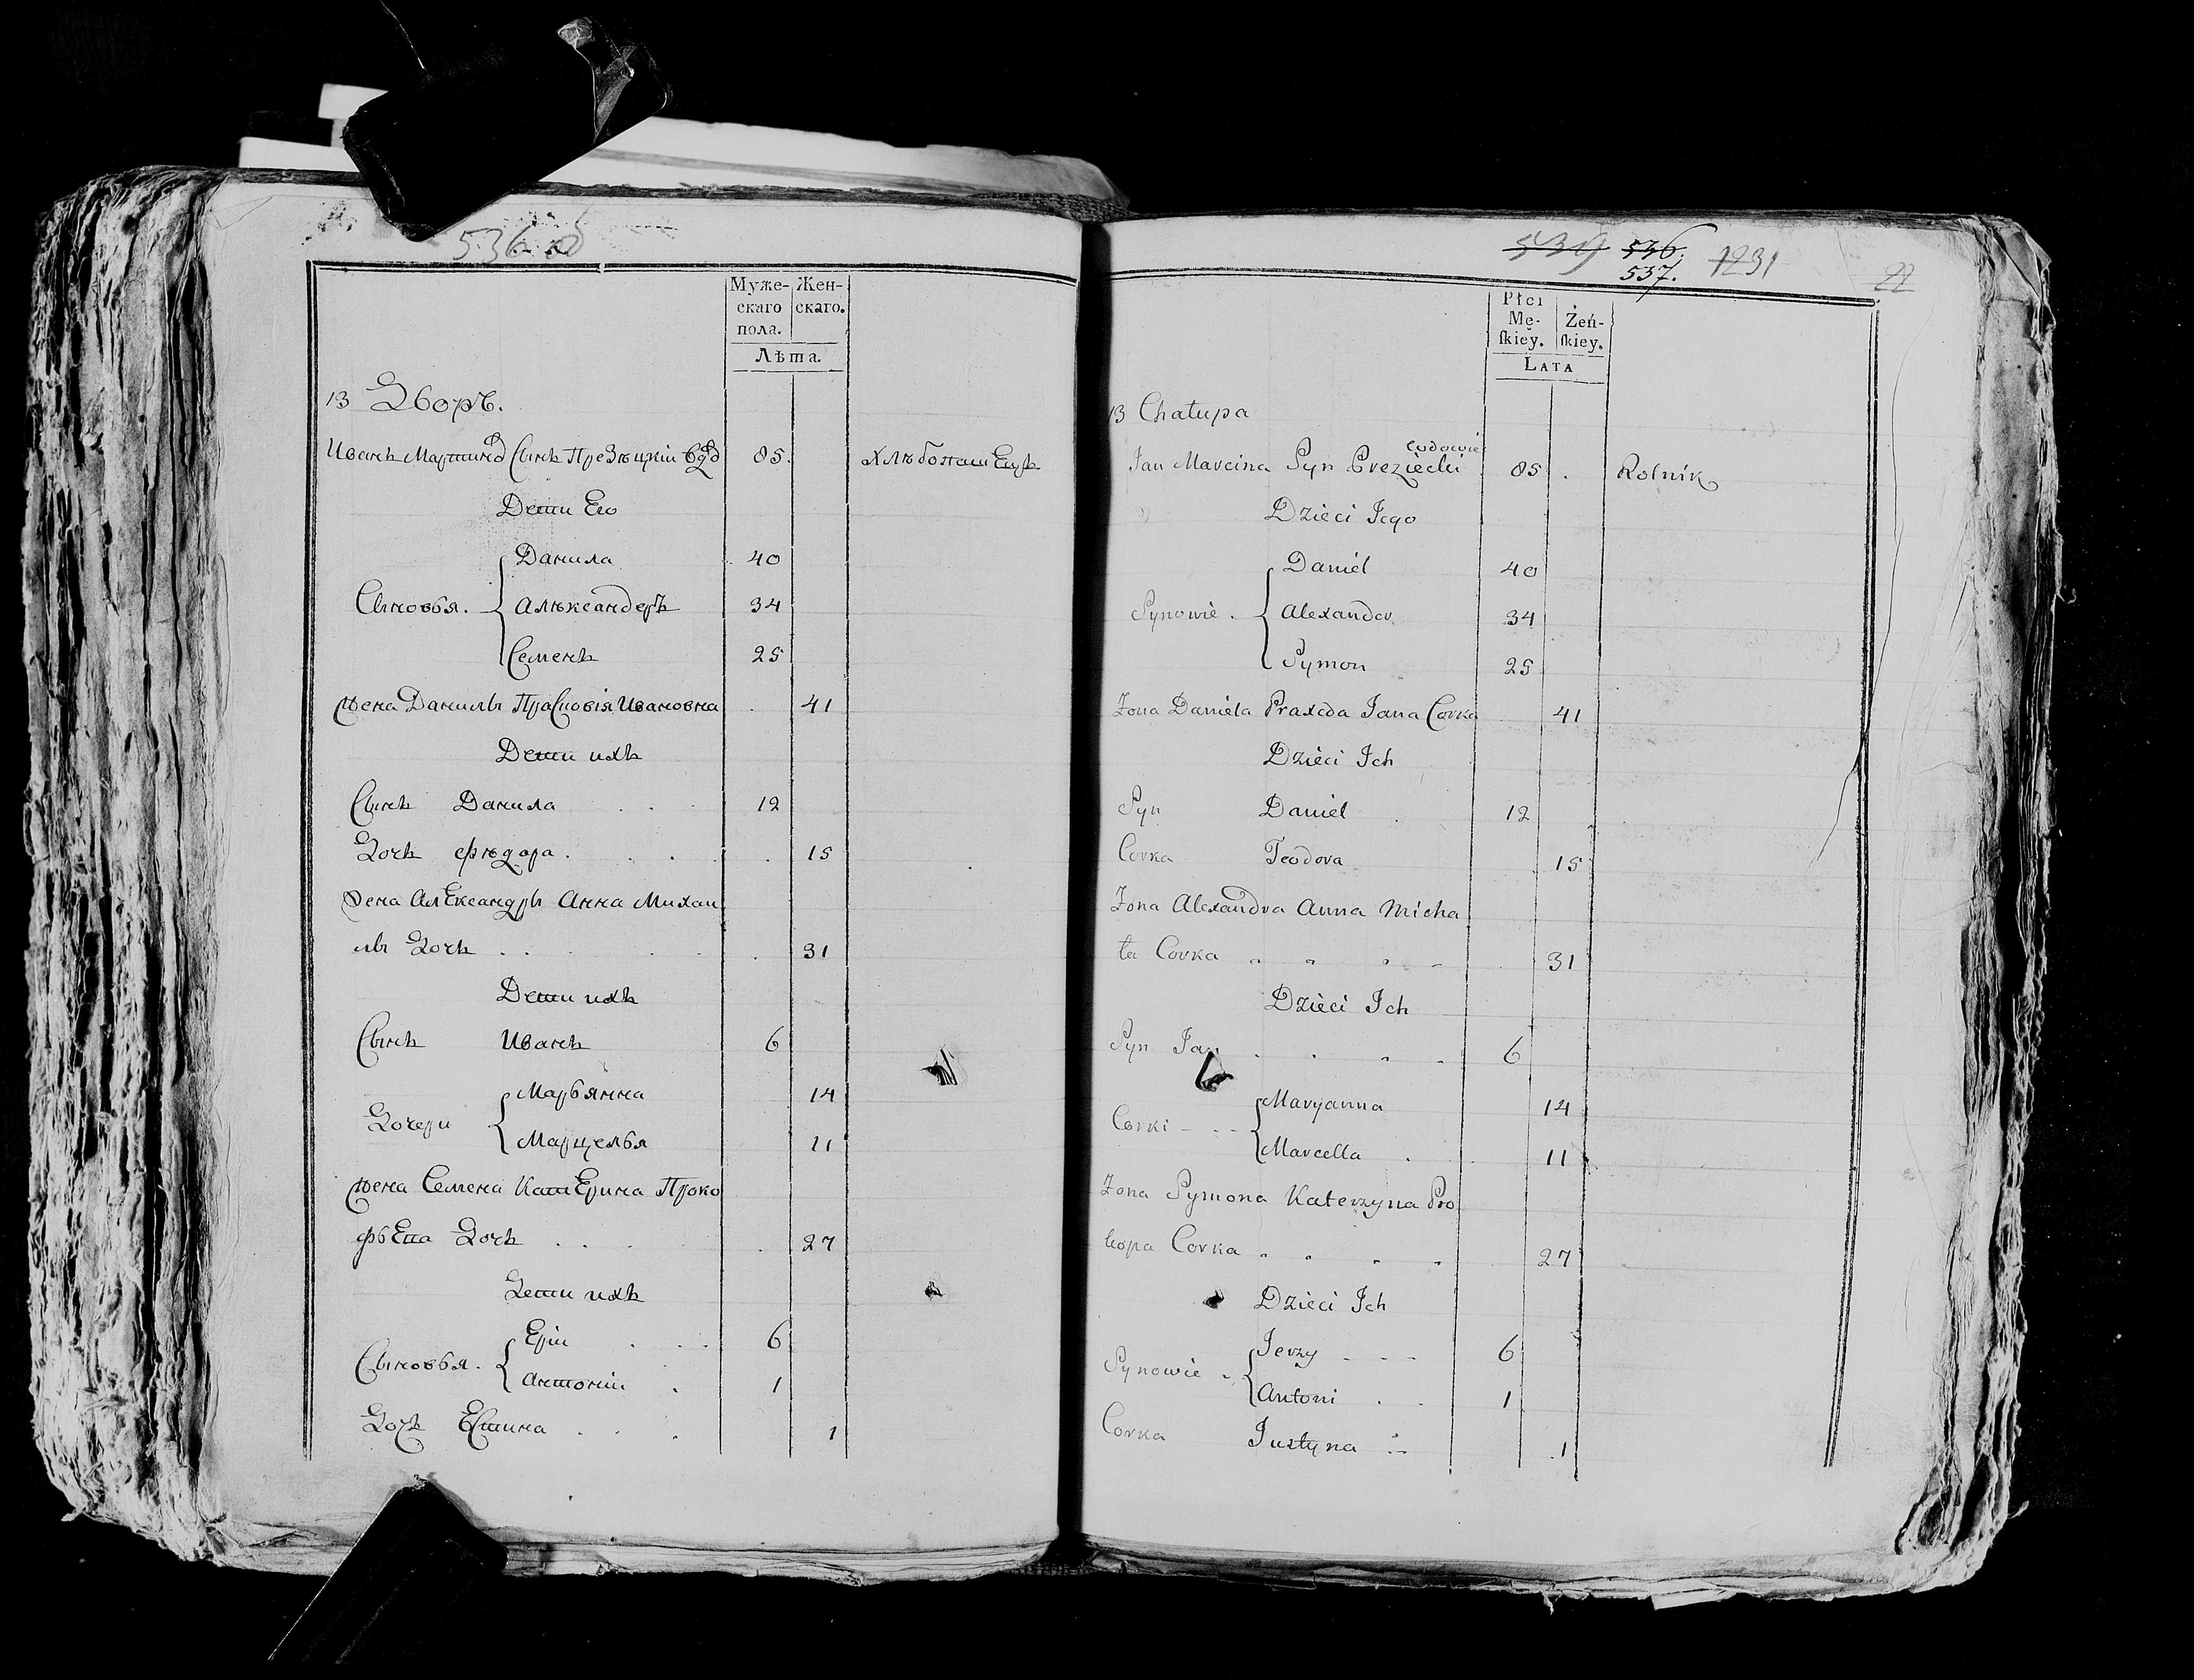 536
Муже-
скаго
пола.
Жен-
скаго.
Лѣта.
13 Дворъ.
Иванъ Мартина Сынъ Презѣцкій 85.
Дети Его
Данила 40
Сыновья. Алѣксандеръ 34
Семенъ 25
Жена Данилы Прасковія Ивановна 41
Дети ихъ
Сынъ Данила 12
Дочь Фѣдора. 15
Жена АлЕксандры Анна Михаи
лы Дочъ 31
Дети ихъ
Сынъ Иванъ 6
Марьянна 14
Дочери
Марцелья 11
Жена Семена КатЕрина Проко
фьЕва Дочъ 27
Дети ихъ
Ерiи 6
Сыновья.
Антонiи 1
Дочъ 1
539 536.
537. 1231
22
Płci
Mę-
ſkiey.
Żeń-
ſkiey.
LATA
13 Chałupa
Jan Marcina Syn Preziecki 85 Rolnik
Dzieci Jego
Daniel 40
Synowie. Alexander 34
Symon 25
Zona Daniela Praxeda Jana Corka 41
Dzieci Ich
Syn Daniel 12
Corka Teodora 15
Zona Alexandra Anna Micha
ła Corka 31
Dzieci Ich
Syn Jan 6
Maryanna 14
Corki
Marcella 11
Zona Symona Katerzyna Pro
kopa Corka 27
Dzieci Ich
Jerzy 6
Synowie
Antoni 1
Corka Justyna 1